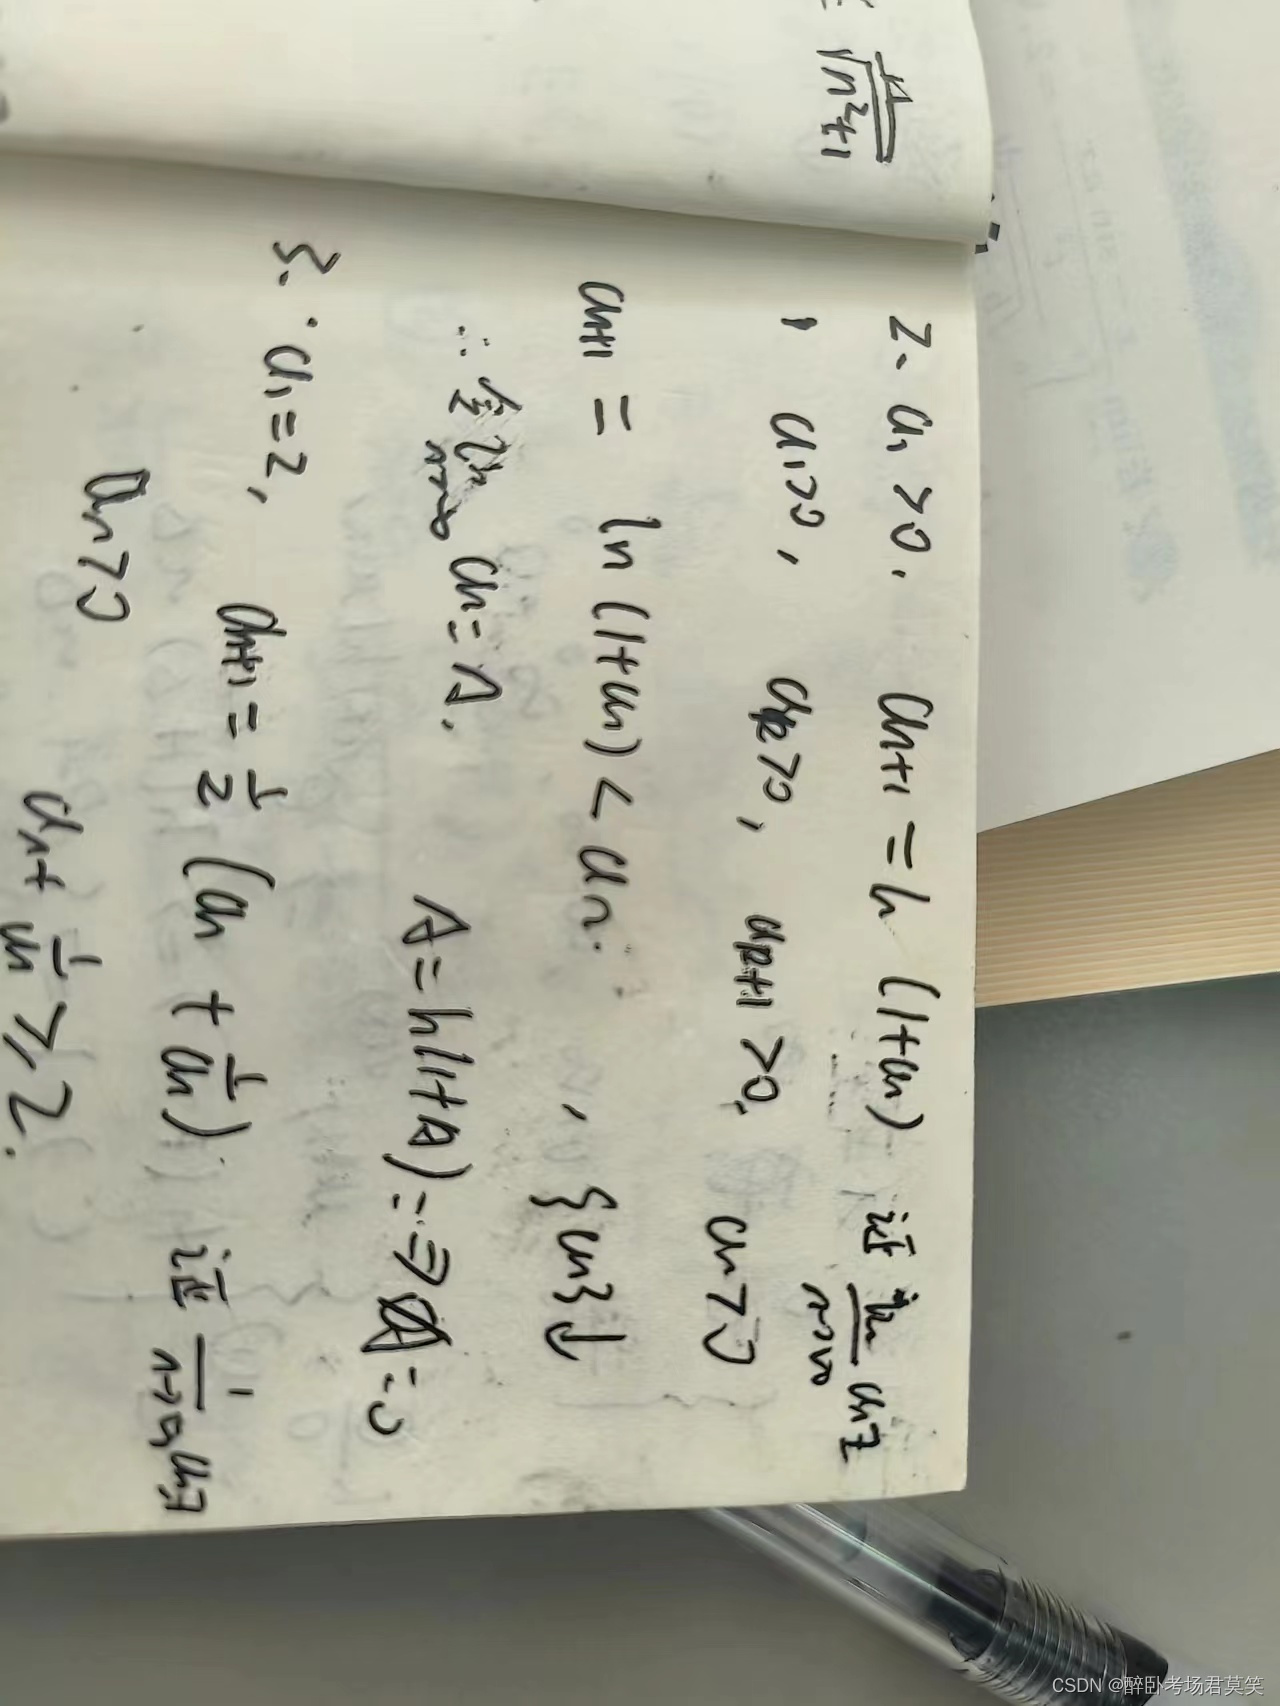 n
√n²+1
2. a₁ >0. aₙ₊₁ = ln (1+aₙ), 证 lim n→∞ aₙ ∃
1 a₁>0, aₖ>0, aₖ₊₁ >0, aₙ>0
aₙ₊₁ = ln (1+aₙ) < aₙ. , {aₙ}↓
∴ 令 lim n→∞ aₙ = A. A=ln(1+A) => A=0
3. a₁=2, aₙ₊₁ = 1/2 (aₙ + 1/aₙ) 证 n→∞ aₙ∃
aₙ>0 aₙ+ 1/aₙ ≥ 2.
CSDN @醉卧考场君莫笑